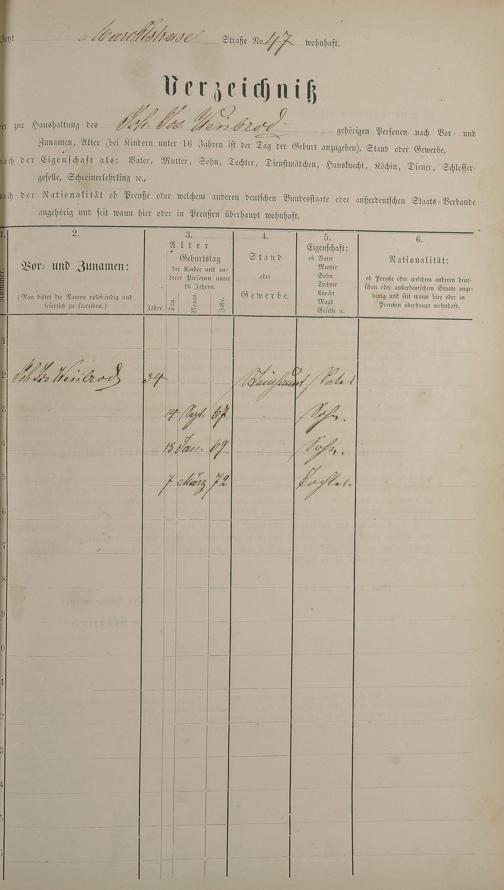 Jetzt Marcktstrasse Straße No. 47 wohnhaft.
Verzeichniß
der zur Haushaltung des Joh. Jos. Weinbrod gehörigen Personen nach Vor- und
Zunamen, Alter (bei Kindern unter 16 Jahren ist der Tag der Geburt anzugeben), Stand oder Gewerbe,
nach der Eigenschaft als: Vater, Mutter, Sohn, Tochter, Dienstmädchen, Hausknecht, Köchin, Diener, Schlosser-
geselle, Schreinerlehrling ꝛc.,
nach der Nationalität ob Preuße oder welchem anderen deutschen Bundesstaate oder außerdeutschen Staats-Verbande
angehörig und seit wann hier oder in Preußen überhaupt wohnhaft.
1. 2. 3. 4. 5. 6.
Nummer.
Vor- und Zunamen:
(Man bittet die Namen vollständig und
leserlich zu schreiben.)
Alter
Geburtstag
der Kinder und an-
derer Personen unter
16 Jahren.
Jahre. Tag. Monat. Jahr.
Stand
oder
Gewerbe.
Eigenschaft:
ob Vater
Mutter
Sohn
Tochter
Knecht
Magd
Geselle u.
Nationalität:
ob Preuße oder welchem anderen deut-
schen oder außerdeutschem Staate ange-
hörig und seit wann hier oder in
Preußen überhaupt wohnhaft.
1
2 Joh. Jos. Weinbrod 34 Vater
3 14 Sept. 67 Sohn.
4 15 Jan. 69 Sohn.
5 7 März 72 Tochter.
6
7
8
9